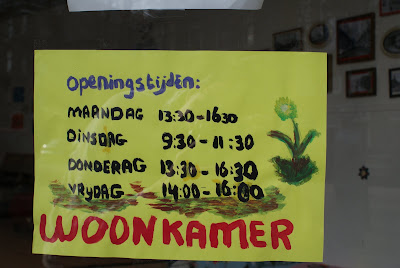 Openingstijden:
MAANDAG 13:30-1630
DINSDAG 9:30-11:30
DONDERAG 13:30-16:30
VRyDAG 14:00-16:00
WOONKAMER